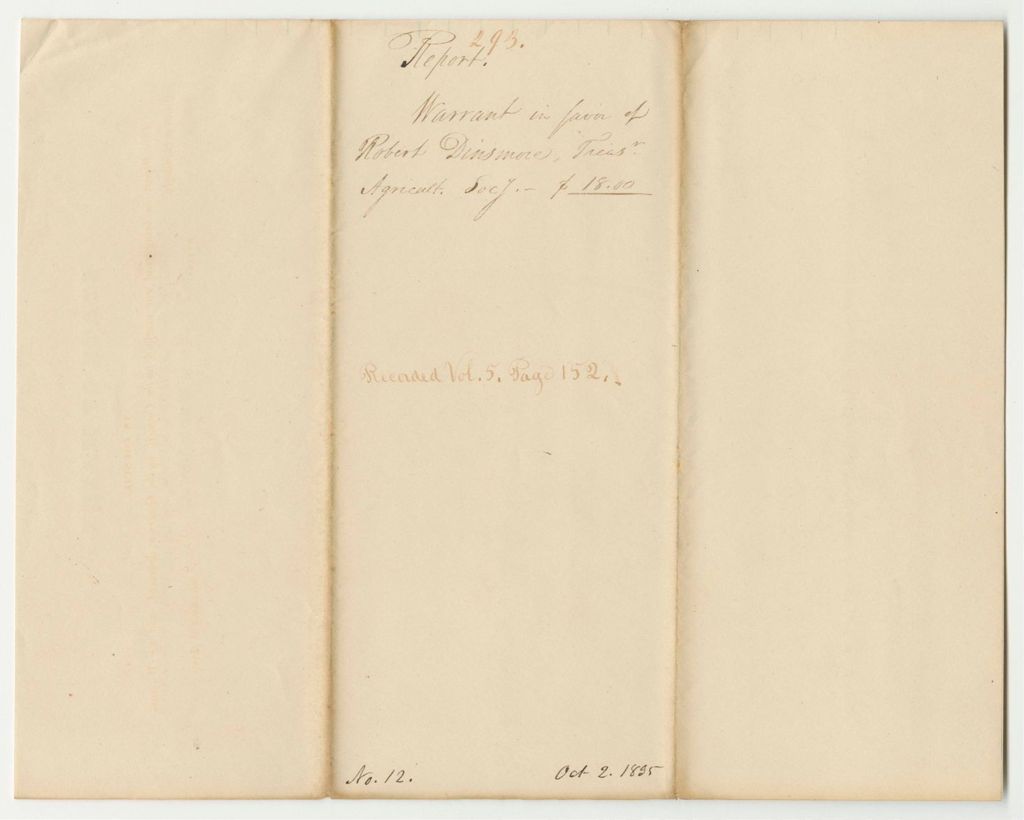 293.
Report.
Warrant in favor of
Robert Dinsmore, Treasr.
Agricult. Socy. - $ 18.00
Recorded Vol. 5. Page 152.
No. 12.
Oct 2. 1835